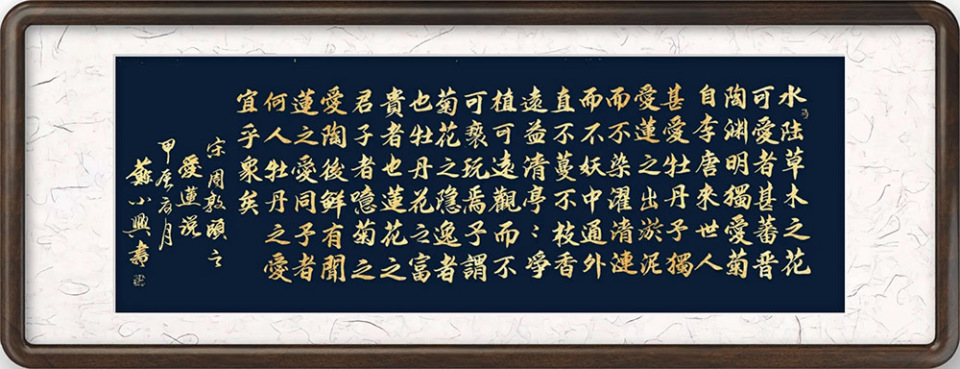 水陸草木之花
可愛者甚蕃晋
陶渊明獨愛菊
自李唐來世人
甚愛牡丹予獨
愛蓮之出淤泥
而不染濯清漣
而不妖中通外
直不蔓不枝香
遠益清亭：淨
植可遠觀而不
可亵玩焉予謂
菊花之隐逸者
也牡丹花之富
貴者也蓮花之
君子者噫菊之
愛陶後鮮有聞
蓮之愛同予者
何人牡丹之愛
宜乎衆矣
宋周敦頤之
愛蓮説
甲辰月
蘇小興書